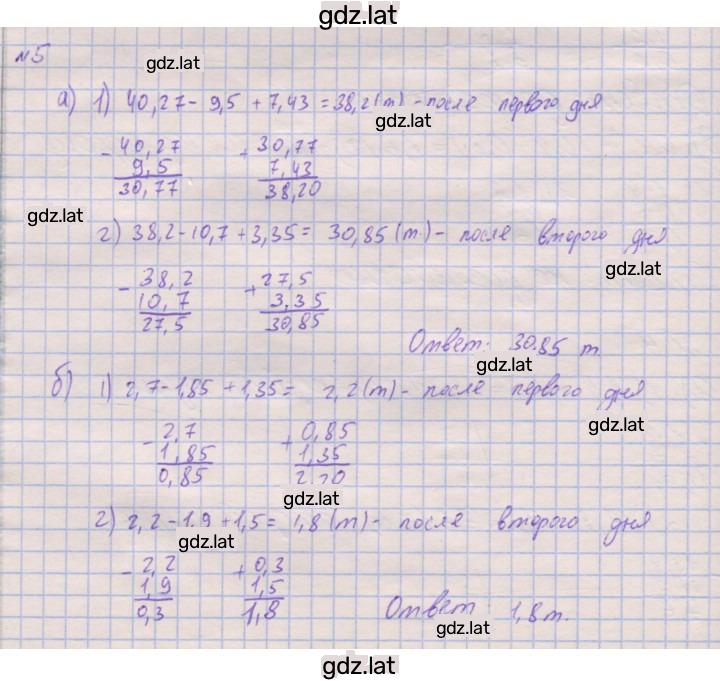 gdz.lat
№5
gdz.lat
а) 1) 40,27 - 9,5 + 7,43 = 38,2 (т) - после первого дня
gdz.lat
- 40,27 + 30,77
9,5 7,43
30,77 38,20
gdz.lat
2) 38,2 - 10,7 + 3,35 = 30,85 (т) - после второго дня
gdz.lat
- 38,2 + 27,5
10,7 3,35
27,5 30,85
Ответ: 30.85 т.
gdz.lat
б) 1) 2,7 - 1,85 + 1,35 = 2,2 (т) - после первого дня
gdz.lat
- 2,7 + 0,85
1,85 1,35
0,85 2,20
gdz.lat
2) 2,2 - 1.9 + 1,5 = 1,8 (т) - после второго дня
gdz.lat
- 2,2 + 0,3
1,9 1,5
0,3 1,8
Ответ 1,8 т.
gdz.lat
gdz.lat